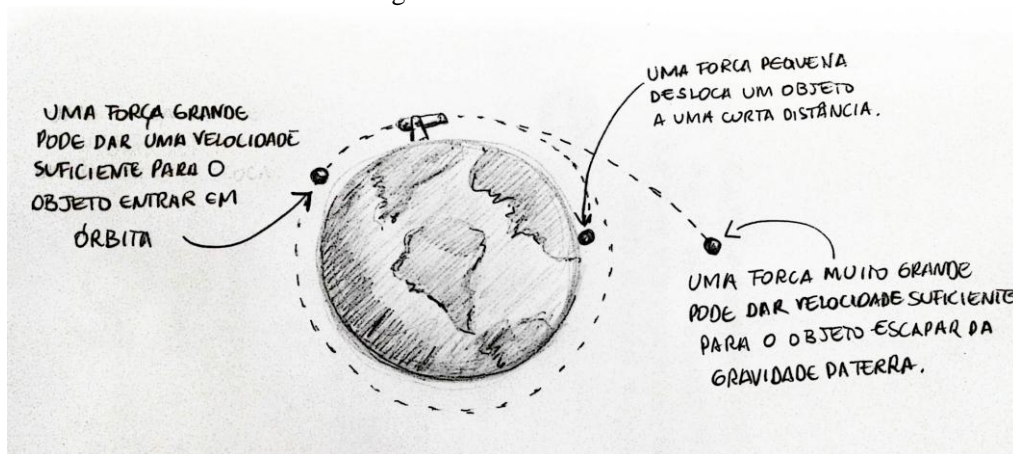 UMA FORÇA GRANDE
PODE DAR UMA VELOCIDADE
SUFICIENTE PARA O
OBJETO ENTRAR EM
ÓRBITA
UMA FORCA PEQUENA
DESLOCA UM OBJETO
A UMA CURTA DISTÂNCIA.
UMA FORCA MUITO GRANDE
PODE DAR VELOCIDADE SUFICIENTE
PARA O OBJETO ESCAPAR DA
GRAVIDADE DA TERRA.